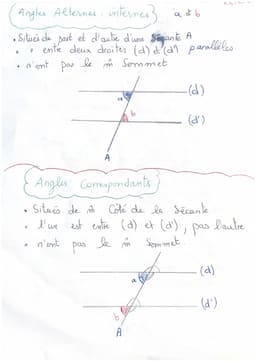 Angles Alternes-internes a et b
• Situés de part et d'autre d'une Sécante A
• " entre deux droites (d) et (d') parallèles.
• n'ont pas le m̂ Sommet
(d)
a
b
(d')
A
Angles Correspondants
• Situés de m̂ Côté de la Sécante
• l'un est entre (d) et (d'), pas l'autre
• n'ont pas le m̂ Sommet.
a
(d)
b
(d')
A